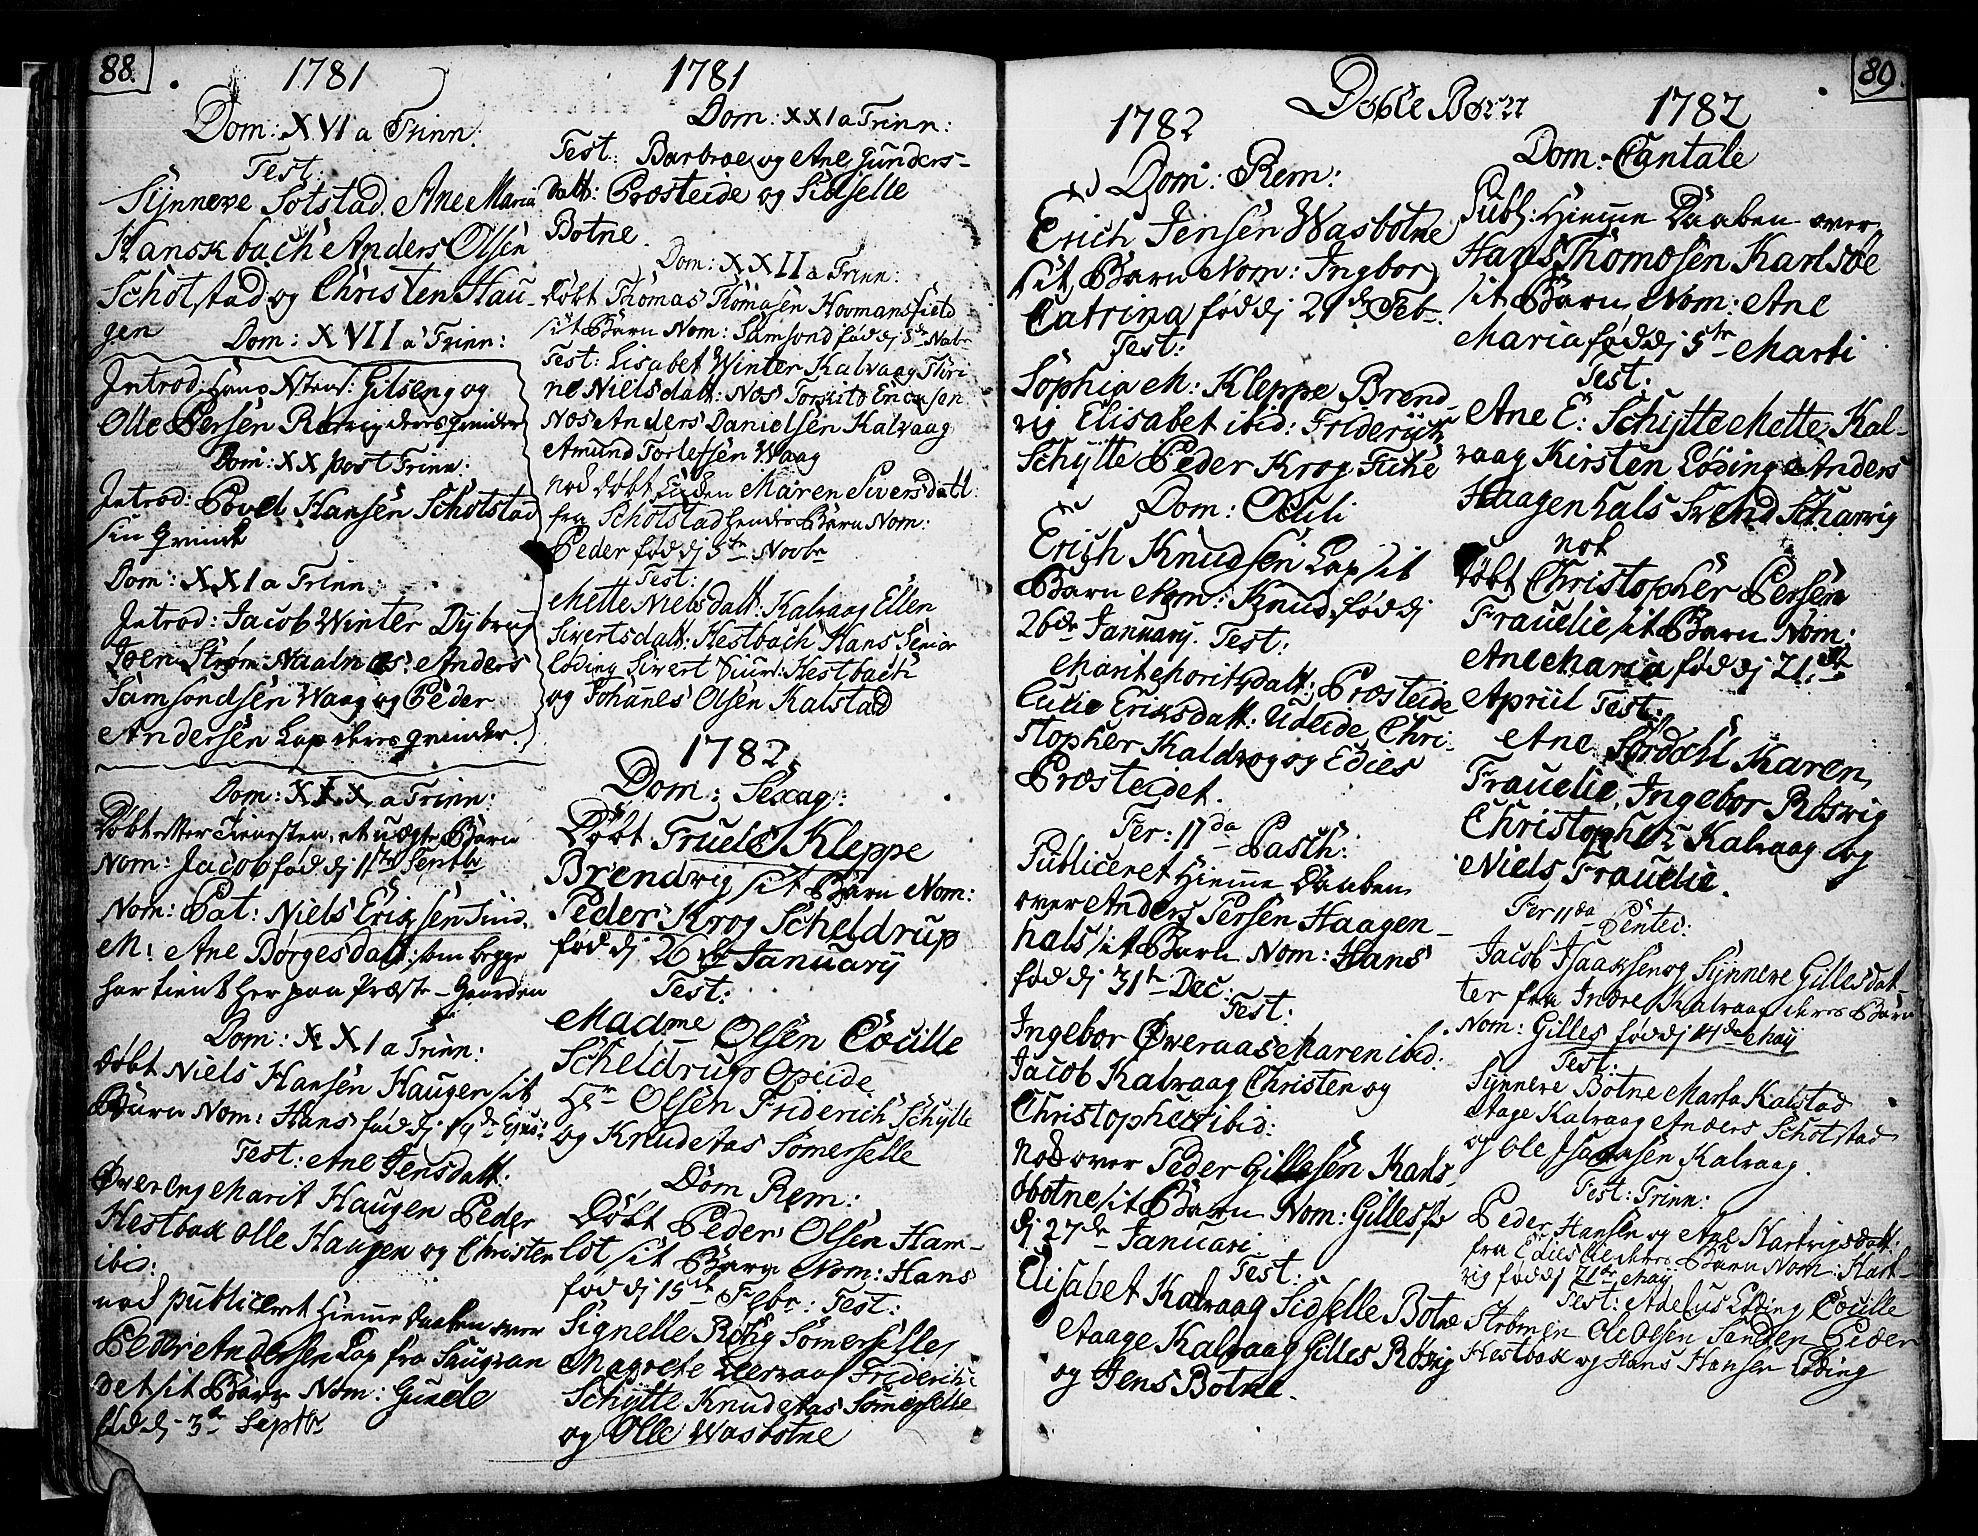 88.
1781
Dom: XVI a Trinn:
Test:
Synneve Sotstad. Ane Maria
Hanskbach Anders Olsen
Schotstad og Christen Hau-
gen
Dom: XVII a Trinn:
Introd: Hans Gilseng og
Olle Persen Rørvig deres qvinder
Dom: XX post Trinn:
Introd: Povel Hansen Schotstad
sin qvinde
Dom: XXI a Trinn:
Introd: Jacob Winter Dybvug
Joen Strøm: Anders
Samsondsen Waag og Peder
Andersen Lap deres qvinder.
Dom: XIX a Trinn:
Døbt etter Tienesten, et uægte Barn
Nom: Jacob fød dj 11te Septbr
Nom: Pat: Niels Eriksen
M: Ane Børgesdatt: som begge
har tient her paa Præste-Gaarden
Dom: XXI a Trinn:
døbt Niels Hansen Haugen sit
Barn Nom: Hans fød dj 19de Ejus:
Test: Ane Jensdatt:
Øvereng Marit Haugen Peder
Hestbak Olle Haugen og Christen
ibid:
nod publiceret Hiemme daaben over
Peder Andersen Lap fra
det sit Barn Nom: Gunele
fød dj 3de Septbr
1781
Dom: XXI a Trinn:
Test: Barbroe og Ane Gunders-
datt: Præsteide og Sidselle
Botne.
Dom: XXII a Trinn:
Døbt Thomas Thomasen Hovmansfield
sit Barn Nom: Samsond fød dj 3de Nobr
Test: Lisabet Winter Kalvaag Thri
ne Nielsdatt: Nos Torkild Ericksen
Nos Anders Danielsen Kalvaag
Amund Torlefsen Waag
nod døbt Maren Siversdatt:
fra Schotstad hendes Barn Nom:
Peder fød dj 5te Novbr
Test:
Mette Nielsdatt: Kalvaag Ellen
Sivertsdatt: Hestbach Hans Senior
Løding Sivert Siurs: Hestbach
og Johanes Olsen Kalstad
1782.
Dom: Sexag:
Døbt Truels Kleppe
Brendvig sit Barn Nom:
Peder Krog Scheldrup
fød dj 26de January
Test:
Madme Olsen Cecille
Scheldrup Opeide
Hr Olsen Friderich Schytte
og Knud Aas Somerselle
Dom Rem:
Døbt Peder Olsen Ham-
lot sit Barn Nom: Hans
fød dj 15de Febr: Test:
Signelle Somerselle
Magrete Friderich
Schytte Knud Aas Somerselle
og Olle Wasbotne
89
Døbte Børn
1782
Dom: Rem:
Erich Jensen Wasbotne
sit Barn Nom: Ingbor
Catrina fød dj 21de Feb.
Test:
Sophia M: Kleppe Brend
vig Elisabet ibid: Friderich
Schytte Peder Krog Fiske
Dom: Oculi
Erich Knudsen Lap sit
Barn Nom: Knud fød dj
26de January. Test:
Marit Moritsdatt: Præsteide
Cicilie Eriksdatt: Udeide Chri-
stopher Kaldvog og Edies
Præsteidet.
Fer: 11da Pasch:
Publiceret Hiemme Daaben
over Anders Persen Haagen-
hals sit Barn Nom: Hans
fød dj 31te Dec:
Test:
Ingebor Øveraas Maren ibid:
Jacob Kalvaag Christen og
Christopher ibid:
Nod over Peder Gillesen Kars-
botne sit Barn Nom: Gilles fø
dj 27de Januari
Test:
Elisabet Kalvaag Sidselle Botne
Aaage Kalvaag Gilles Røsvig
og Jens Botne.
1782
Dom: Cantate
Publ: Hiemme Daaben over
Hans Thomosen Karlsøe
sit Barn Nom: Ane
Maria fød dj 5te Marti
Test:
Ane E: Schytte Mette Kal-
vaag Kirsten Løding Anders
Haagenhals Svend Scharvig
nok
døbt Christopher Persen
Frauelie sit Barn Nom:
Ane Maria fød dj 21de
Apriil Test:
Ane Sørdahl Karen
Frauelie, Ingebor Røsvig
Christopher Kalvaag og
Niels Frauelie.
Fer 11da Pented:
Jacob Isaaksen og Synneve Gillesdat-
ter fra Indre Kalvaag deres Barn
Nom: Gilles fød dj 14de May
Test:
Synneve Botne Marta Kalstad
Aage Kalvaag Anders Schotstad
og Ole Isaaksen Kalvaag.
Fest: Trinn:
Peder Hansen og Ane Hartvigsdatt:
fra deres Barn Nom: Hart-
vig fød dj 21de May
Test: Adelus Løding Cecille
Strømen Ole Olsen Sanden Peder
Hestbak og Hans Hansen Løding